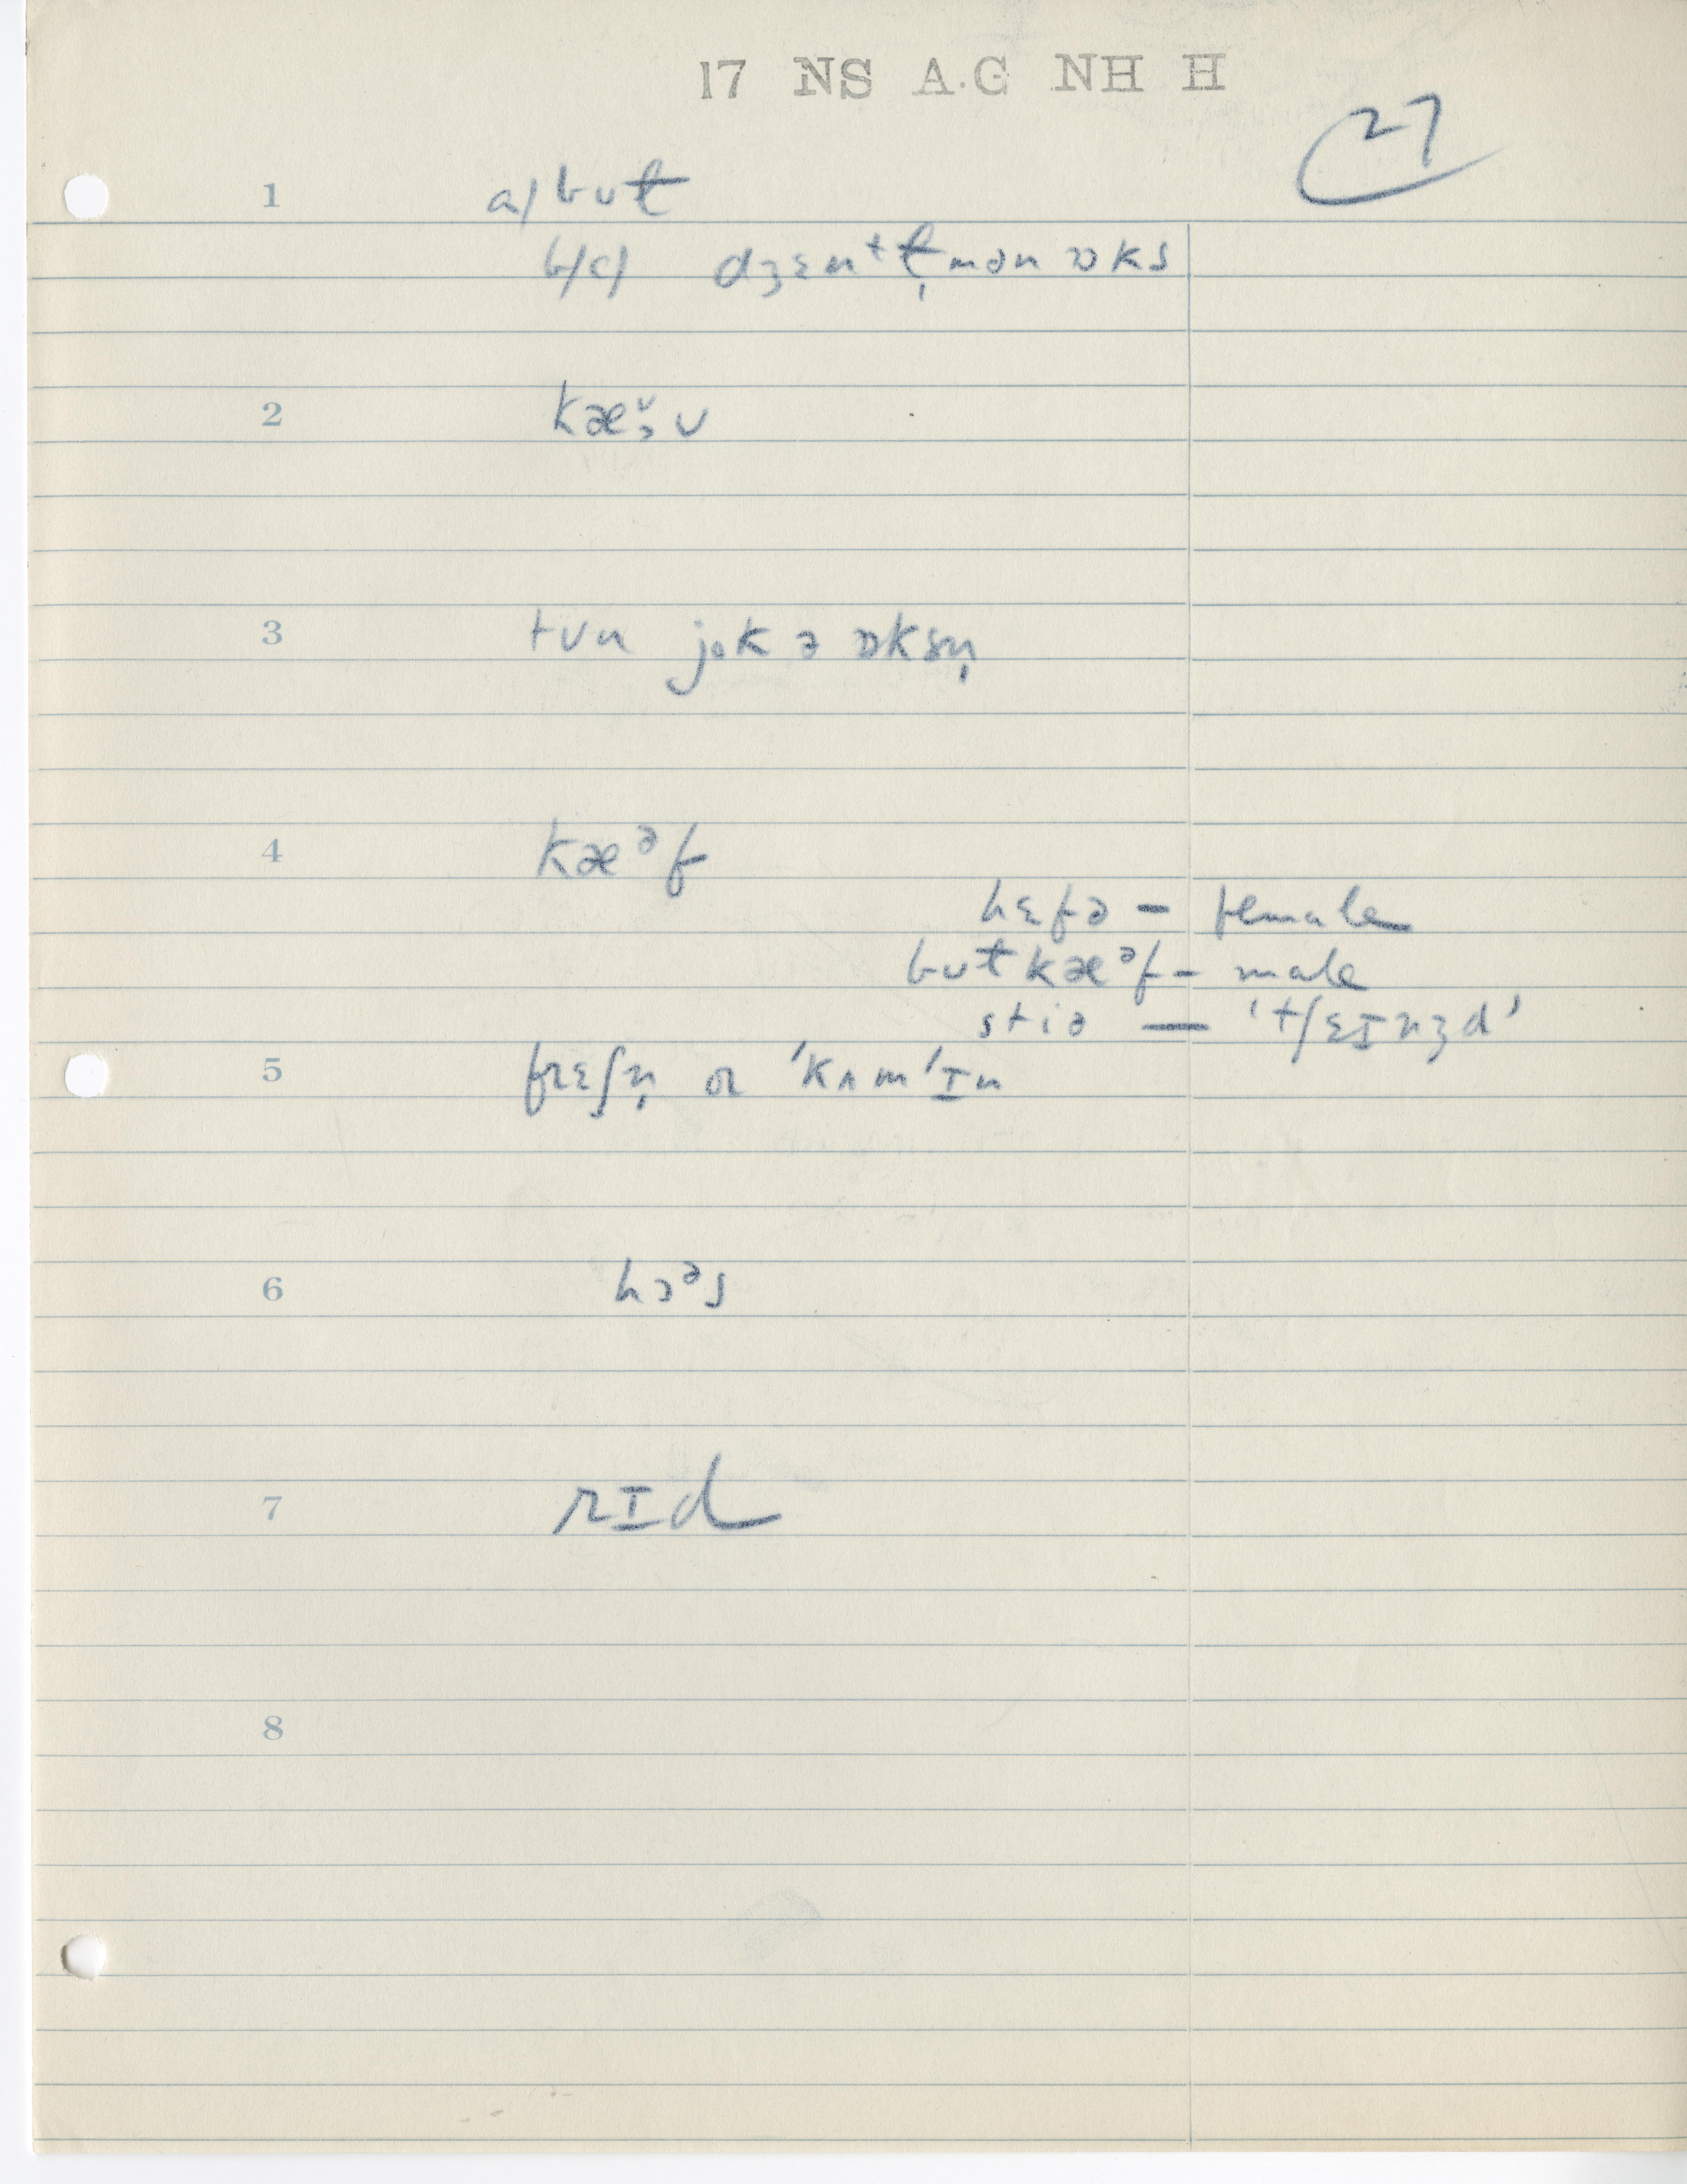 17 NS A.G NH H
27
1 a) bʊɫ
b/c) dʒɛn⁺ɫ̩mən ɒks
2 kæʊ̯
3 tʊu jok ə ɒksn̩
4 kæᵊf
hɛfə – female
bʊɫkæᵊf – male
stiə — 'tʃɛɪnʒd'
5 frɛʃn̩ or 'kʌm'ɪn
6 hɔᵊs
7 rɪd
8